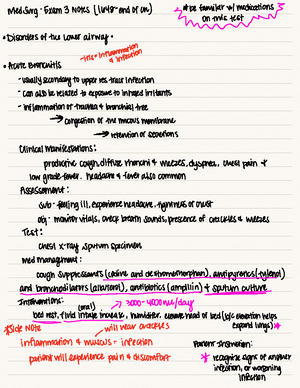 Med Surg - Exam 3 Notes (1648-end of ch)
*be familiar w/ medications
on this test
• Disorders of the Lower airway •
-itis = inflammation
& infection
• Acute Bronchitis
- usually secondary to upper res. tract infection
- can also be related to exposure to inhaled irritants
- inflammation of trachea & bronchial tree
→ congestion of the mucous membrane
→ retention of secretions
Clinical Manifestations:
productive cough, diffuse rhonchi & wheezes, dyspnea, chest pain &
low grade fever. headache & fever also common
Assessment:
sub - feeling ill, experience headache, tightness of chest
obj - monitor vitals, check breath sounds, presence of crackles & wheezes
Test:
chest x-ray, sputum specimen
med management:
cough suppressants (codeine and dextromethorphan), antipyretics (tylenol)
and bronchodilators (albuterol), antibiotics (ampillin) & sputum culture
Interventions: (oral) → 3000-4000 mL/day
bed rest, fluid intake increase, humidifier, elevate head of bed (b/c elevation helps
expand lungs)
*Side Note → will hear crackles
inflammation & mucous = infection
patient will experience pain & discomfort
Patient Information:
* recognize signs of another
infection, or worsening
infection